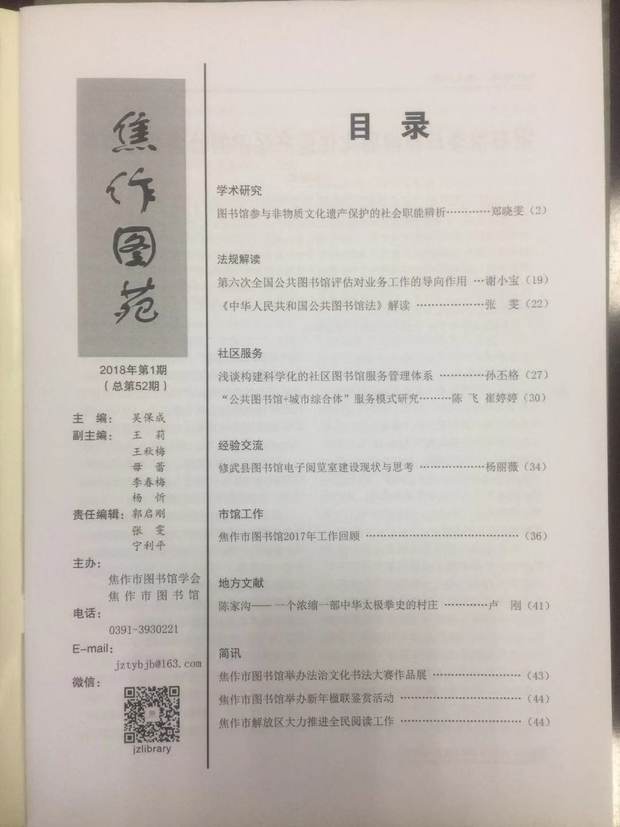 焦作图苑
2018年第1期
（总第52期）
主　编：吴保成
副主编：王　莉
王秋梅
毋　蕾
李春梅
杨　忻
责任编辑：郭启刚
张　雯
宁利平
主办：
焦作市图书馆学会
焦作市图书馆
电话：
0391-3930221
E-mail：
jztybjb@163.com
微信：
jzlibrary
目 录
学术研究
图书馆参与非物质文化遗产保护的社会职能辨析…………郑晓雯（2）
法规解读
第六次全国公共图书馆评估对业务工作的导向作用 …谢小宝（19）
《中华人民共和国公共图书馆法》解读 ……………张　雯（22）
社区服务
浅谈构建科学化的社区图书馆服务管理体系 …………孙丕格（27）
“公共图书馆+城市综合体”服务模式研究………陈 飞 崔婷婷（30）
经验交流
修武县图书馆电子阅览室建设现状与思考 ………………杨丽薇（34）
市馆工作
焦作市图书馆2017年工作回顾 ……………………………（36）
地方文献
陈家沟—— 一个浓缩一部中华太极拳史的村庄 …………卢　刚（41）
简讯
焦作市图书馆举办法治文化书法大赛作品展 ……………………（43）
焦作市图书馆举办新年楹联鉴赏活动 …………………………（44）
焦作市解放区大力推进全民阅读工作 …………………………（44）